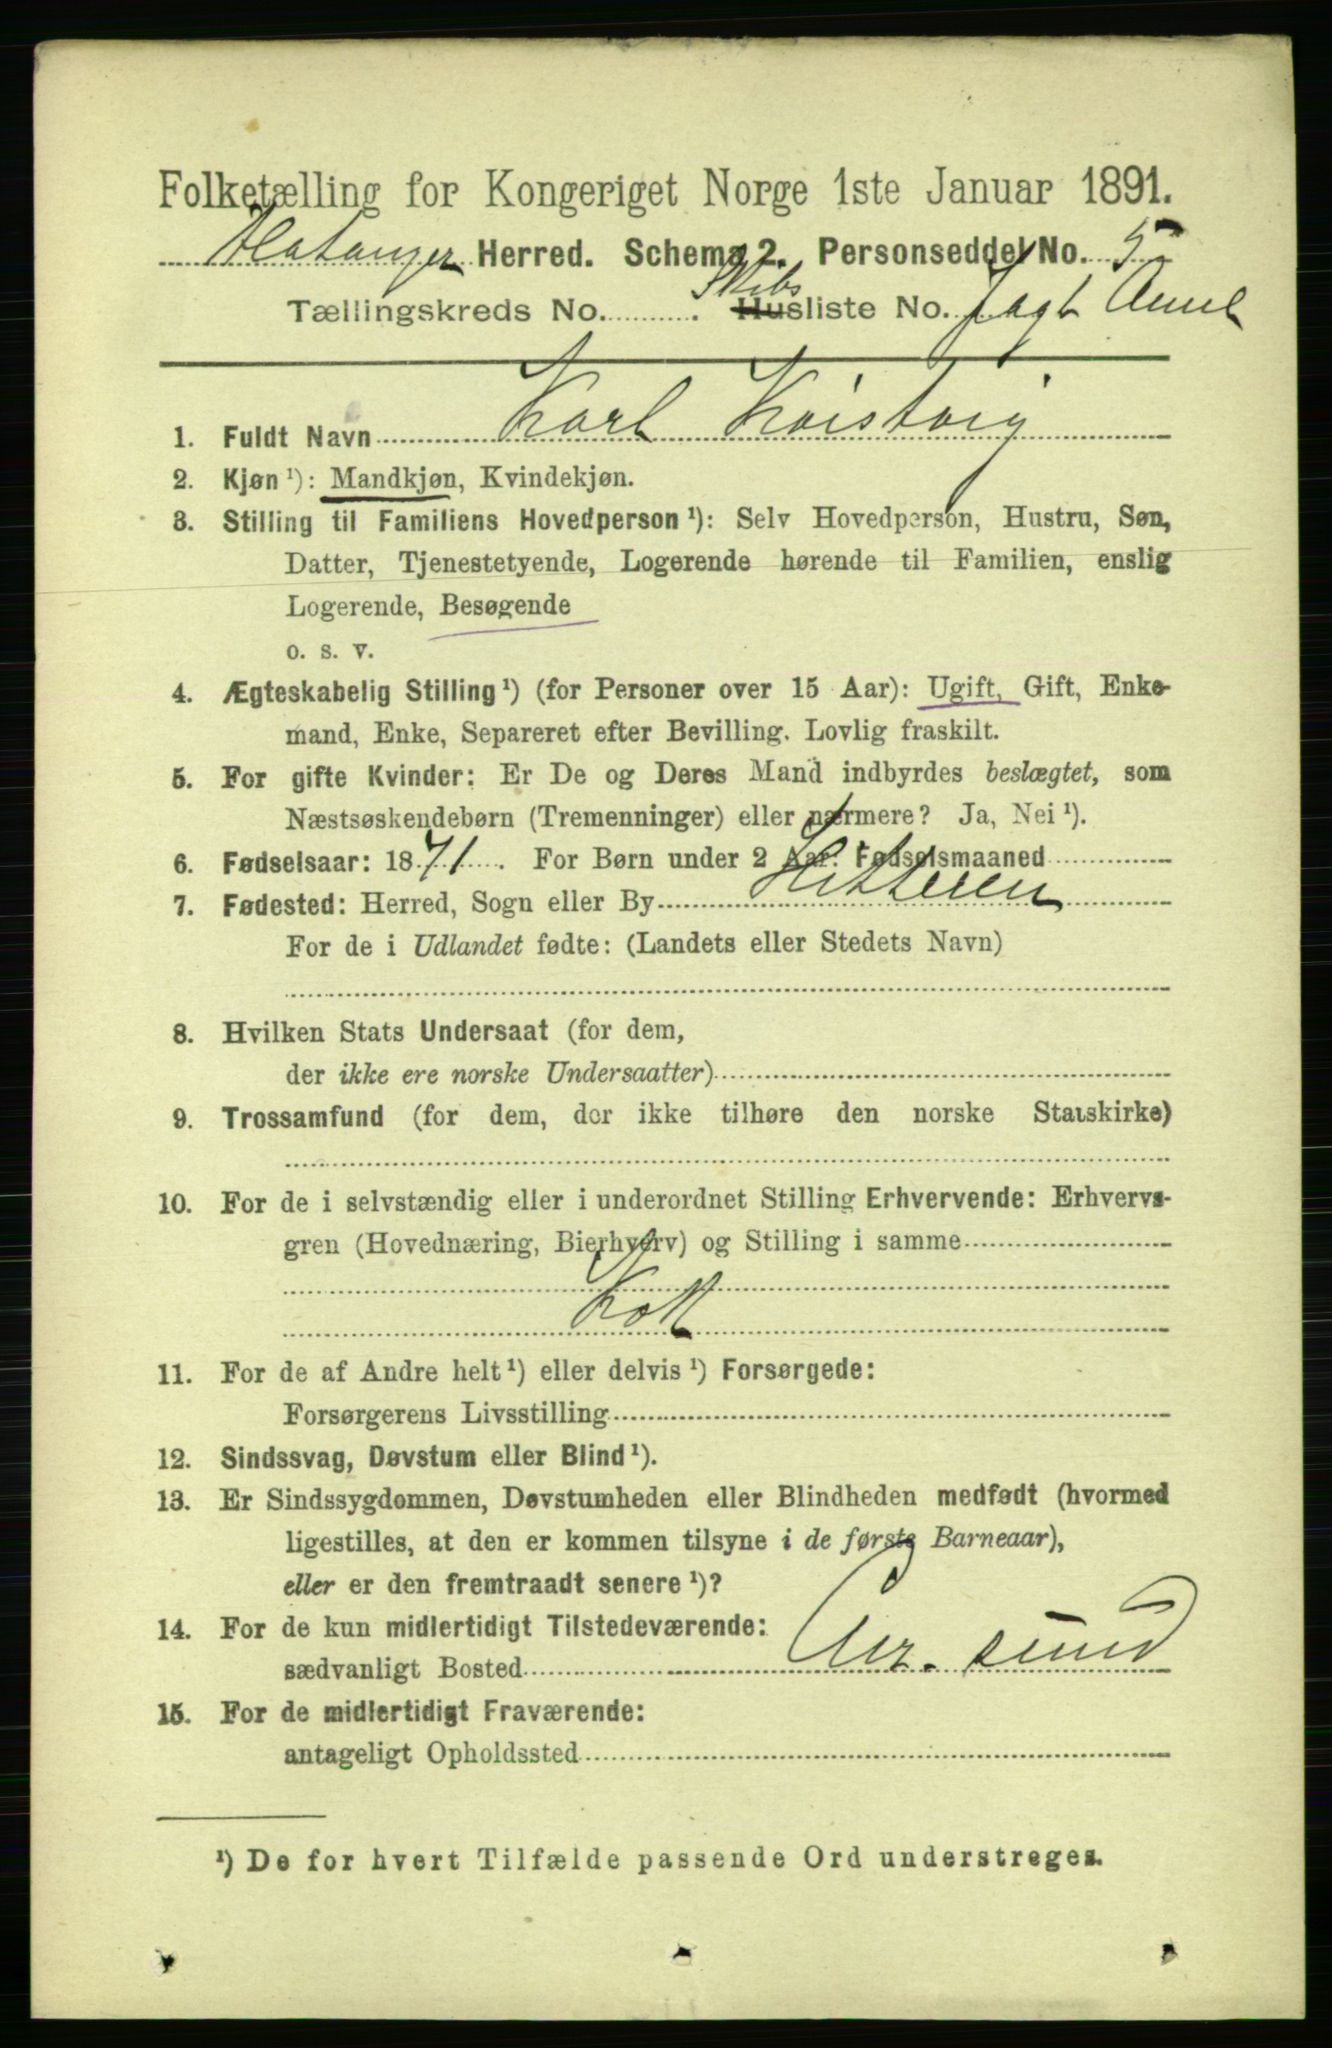 Folketælling for Kongeriget Norge 1ste Januar 1891.
Flatanger Herred. Schema 2. Personseddel No. 5
Tællingskreds No. Skibs Husliste No. Jagt Anne
1. Fuldt Navn Karl
2. Kjøn ¹): Mandkjøn, Kvindekjøn.
3. Stilling til Familiens Hovedperson ¹): Selv Hovedperson, Hustru, Søn,
Datter, Tjenestetyende, Logerende hørende til Familien, enslig
Logerende, Besøgende
o. s. v.
4. Ægteskabelig Stilling ¹) (for Personer over 15 Aar): Ugift, Gift, Enke-
mand, Enke, Separeret efter Bevilling. Lovlig fraskilt.
5. For gifte Kvinder: Er De og Deres Mand indbyrdes beslægtet, som
Næstsøskendebørn (Tremenninger) eller nærmere? Ja, Nei ¹).
6. Fødselsaar: 1871. For Børn under 2 Aar: Fødselsmaaned
7. Fødested: Herred, Sogn eller By Hitteren
For de i Udlandet fødte: (Landets eller Stedets Navn)
8. Hvilken Stats Undersaat (for dem,
der ikke ere norske Undersaatter)
9. Trossamfund (for dem, der ikke tilhøre den norske Statskirke)
10. For de i selvstændig eller i underordnet Stilling Erhvervende: Erhvervs-
gren (Hovednæring, Bierhverv) og Stilling i samme
Kok
11. For de af Andre helt ¹) eller delvis ¹) Forsørgede:
Forsørgerens Livsstilling
12. Sindssvag, Døvstum eller Blind ¹).
13. Er Sindssygdommen, Døvstumheden eller Blindheden medfødt (hvormed
ligestilles, at den er kommen tilsyne i de første Barneaar),
eller er den fremtraadt senere ¹)?
14. For de kun midlertidigt Tilstedeværende:
sædvanligt Bosted Chr.sund
15. For de midlertidigt Fraværende:
antageligt Opholdssted
¹) De for hvert Tilfælde passende Ord understreges.